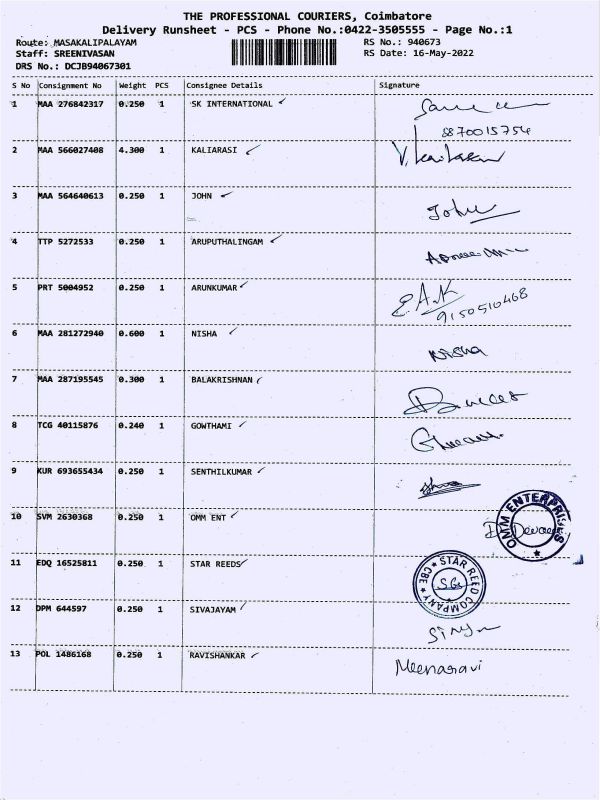 THE PROFESSIONAL COURIERS, Coimbatore
Delivery Runsheet - PCS - Phone No.:0422-3505555 - Page No.:1
Route: MASAKALIPALAYAM RS No.: 940673
Staff: SREENIVASAN RS Date: 16-May-2022
DRS No.: DCJB94067301
S No Consignment No Weight PCS Consignee Details Signature
1 MAA 276842317 0.250 1 SK INTERNATIONAL
8870015754
2 MAA 566027408 4.300 1 KALIARASI
3 MAA 564640613 0.250 1 JOHN John
4 TTP 5272533 0.250 1 ARUPUTHALINGAM
5 PRT 5004952 0.250 1 ARUNKUMAR E.A.K
9150510468
6 MAA 281272940 0.600 1 NISHA Nisha
7 MAA 287195545 0.300 1 BALAKRISHNAN
8 TCG 40115876 0.240 1 GOWTHAMI
9 KUR 693655434 0.250 1 SENTHILKUMAR
10 SVM 2630368 0.250 1 OMM ENT OMM ENTERPRISES
11 EDQ 16525811 0.250 1 STAR REEDS STAR REED COMPANY CBE
12 DPM 644597 0.250 1 SIVAJAYAM
13 POL 1486168 0.250 1 RAVISHANKAR Meenaravi